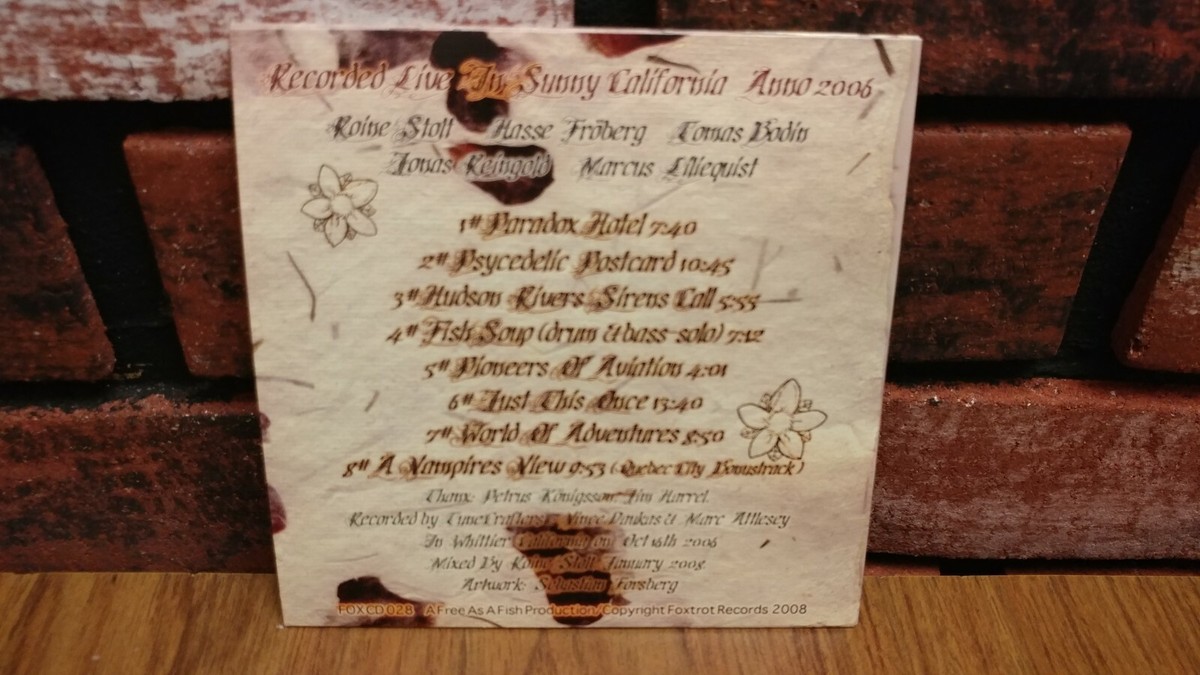 Recorded Live In Sunny California Anno 2006
Roine Stolt Hasse Fröberg Tomas Bodin
Jonas Reingold Marcus Liliequist
1# Paradox Hotel 7:40
2# Psycedelic Postcard 10:45
3# Hudson Rivers Sirens Call 5:55
4# Fish Soup (drum & bass-solo) 7:12
5# Pioneers Of Aviation 4:01
6# Just This Once 13:40
7# World Of Adventures 8:50
8# A Vampires View 9:53 (Quebec City Bonustrack)
Thanx: Petrus Königsson, Jim Harrel
Recorded by TimeCrafters: Vince Daukas & Marc Attlesey
In Whittier California on Oct 16th 2006
Mixed By Roine Stolt January 2008
Artwork: Sebastian Forsberg
FOXCD 028 A Free As A Fish Production/Copyright Foxtrot Records 2008